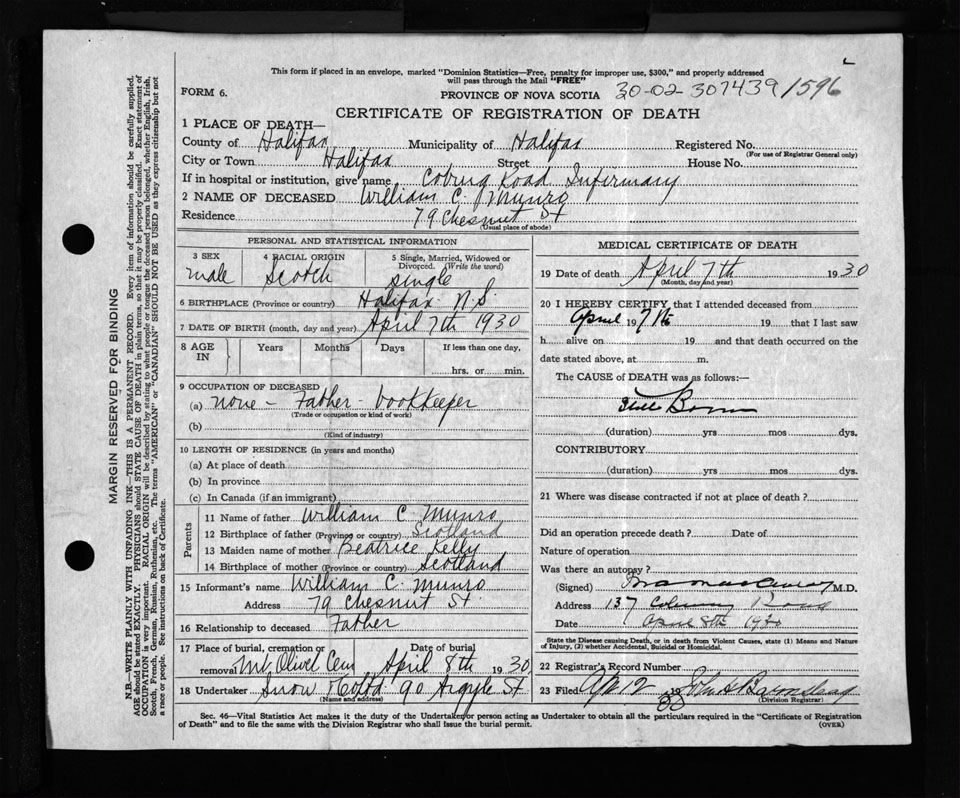 This form if placed in an envelope, marked "Dominion Statistics—Free, penalty for improper use, $300," and properly addressed
will pass through the Mail "FREE"
FORM 6.
PROVINCE OF NOVA SCOTIA
30-02-307439/1596
CERTIFICATE OF REGISTRATION OF DEATH
1 PLACE OF DEATH—
County of Halifax Municipality of Halifax Registered No.
(For use of Registrar General only)
City or Town Halifax Street House No.
If in hospital or institution, give name Coburg Road Infirmary
2 NAME OF DECEASED William C. Munro
Residence 79 Chesnut St
(Usual place of abode)
PERSONAL AND STATISTICAL INFORMATION
3 SEX 4 RACIAL ORIGIN 5 Single, Married, Widowed or
Divorced. (Write the word)
male Scotch single
6 BIRTHPLACE (Province or country) Halifax N.S.
7 DATE OF BIRTH (month, day and year) April 7th 1930
8 AGE IN Years Months Days If less than one day,
hrs. or min.
9 OCCUPATION OF DECEASED
(a) none - Father - bookkeeper
(Trade or occupation or kind of work)
(b)
(Kind of industry)
10 LENGTH OF RESIDENCE (in years and months)
(a) At place of death
(b) In province
(c) In Canada (if an immigrant)
Parents
11 Name of father William C. Munro
12 Birthplace of father (Province or country) Scotland
13 Maiden name of mother Beatrice Kelly
14 Birthplace of mother (Province or country) Scotland
15 Informant's name William C. Munro
Address 79 Chesnut St.
16 Relationship to deceased Father
17 Place of burial, cremation or removal Mt Olivet Cem Date of burial April 8th 1930
18 Undertaker Snow & Co Ltd 90 Argyle St
(Name and address)
MEDICAL CERTIFICATE OF DEATH
19 Date of death April 7th 1930
(Month, day and year)
20 I HEREBY CERTIFY that I attended deceased from
April 19 7th 19 that I last saw
h alive on 19 and that death occurred on the
date stated above, at m.
The CAUSE OF DEATH was as follows:—
Still Born
(duration) yrs mos dys.
CONTRIBUTORY
(duration) yrs mos dys.
21 Where was disease contracted if not at place of death?
Did an operation precede death? Date of
Nature of operation
Was there an autopsy?
(Signed) M.D.
Address 137
Date April 8th 1930
State the Disease causing Death, or in death from Violent Causes, state (1) Means and Nature
of Injury, (2) whether Accidental, Suicidal or Homicidal.
22 Registrar's Record Number
23 Filed Ap 12 19 30 John H Barnstead
(Division Registrar)
Sec. 46—Vital Statistics Act makes it the duty of the Undertaker or person acting as Undertaker to obtain all the particulars required in the "Certificate of Registration
of Death" and to file the same with the Division Registrar who shall issue the burial permit.
(OVER)
MARGIN RESERVED FOR BINDING
N.B.—WRITE PLAINLY WITH UNFADING INK—THIS IS A PERMANENT RECORD. Every item of information should be carefully supplied.
AGE should be stated EXACTLY. PHYSICIANS should STATE CAUSE OF DEATH in plain terms, so that it may be properly classified. Exact statement of
OCCUPATION is very important. RACIAL ORIGIN will be described by stating to what people or tongue the deceased person belonged, whether English, Irish,
Scotch, French, German, Russian, Ruthenian, etc. The terms "AMERICAN" or "CANADIAN" SHOULD NOT BE USED as they express citizenship but not
a race or people. See instructions on back of Certificate.